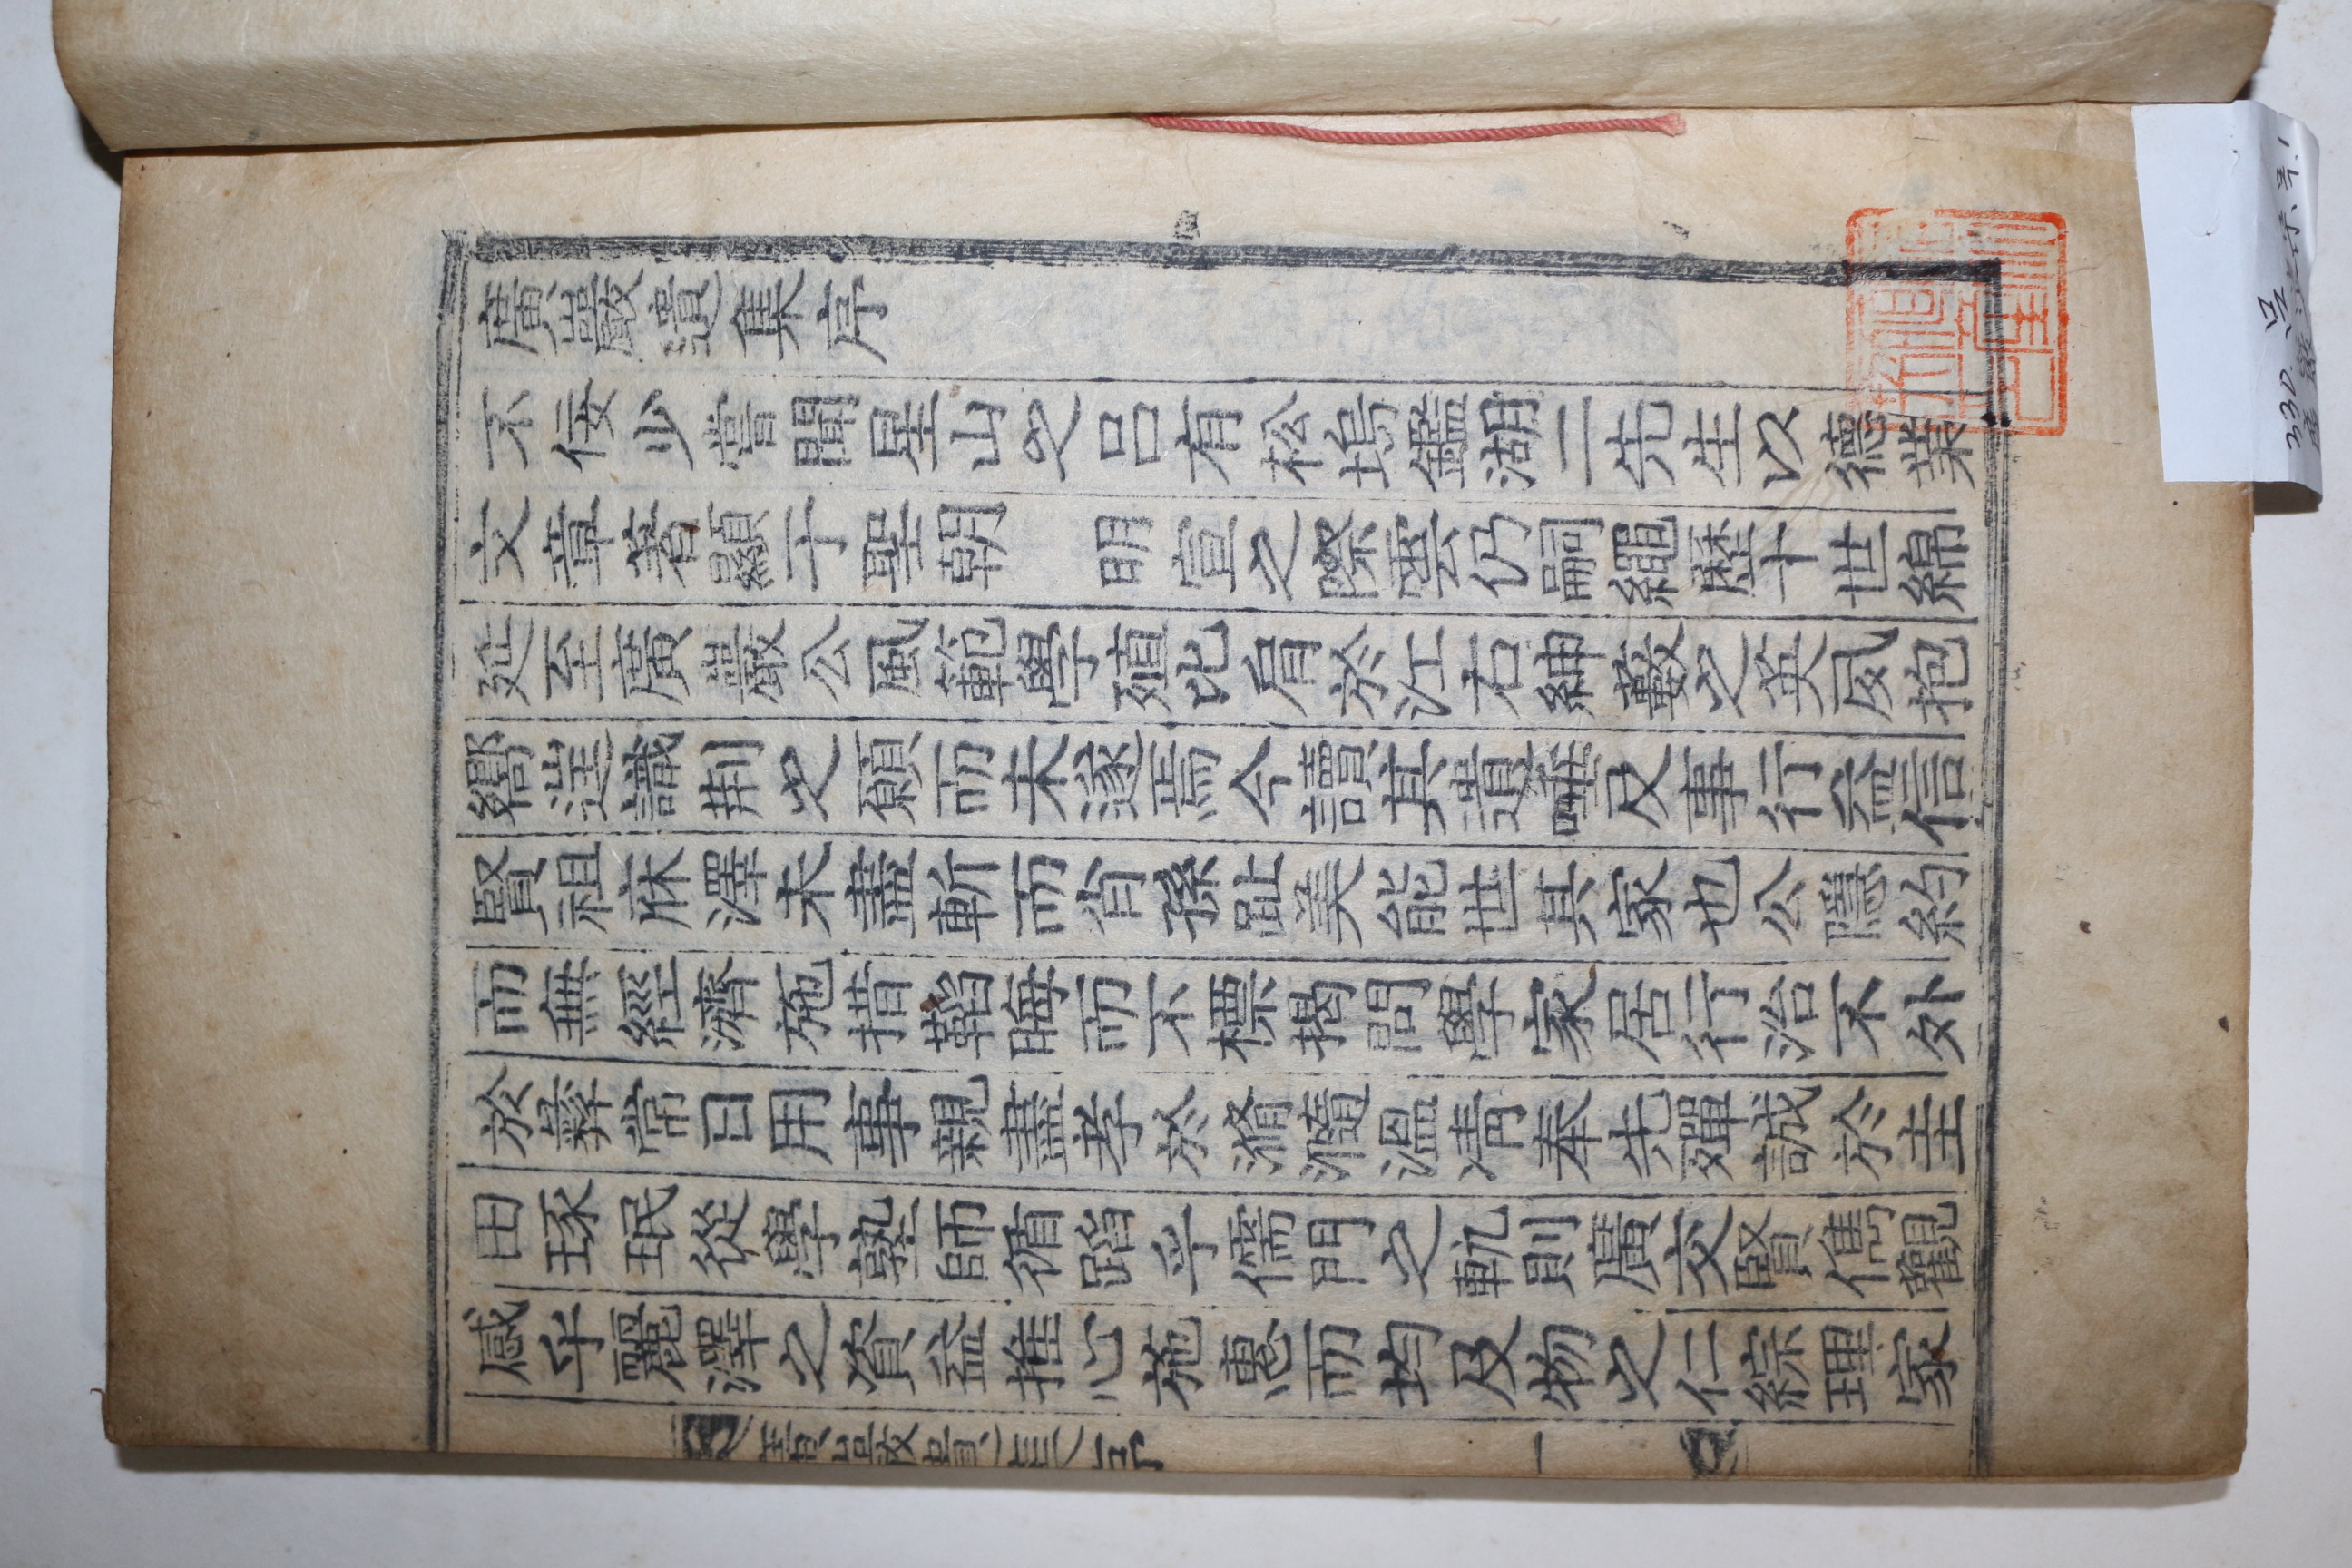 廣巖遺集序
不佞少嘗聞星山之呂有松塢鑑湖二先生以德業
文章著顯于聖朝 明宣之際雲仍嗣繩歷十世綿
延至廣巖公風範學殖比肩於江右紳藪之英夙抱
嚮𨓏識荆之願而未遂焉今讀其遺唾及事行益信
賢祖庥澤未盡斬而肖孫趾美能世其家也公隱約
而無經濟施措韜晦而不標揭問學家居行治不外
於彛常日用事親盡孝於滫瀡溫凊奉先殫誠於圭
田琢珉從學塾師循蹈乎儒門之軌則廣交賢儁觀
感乎麗澤之資益推心施惠而均及物之仁綜理家
廣巖遺集序
一
330. 呂